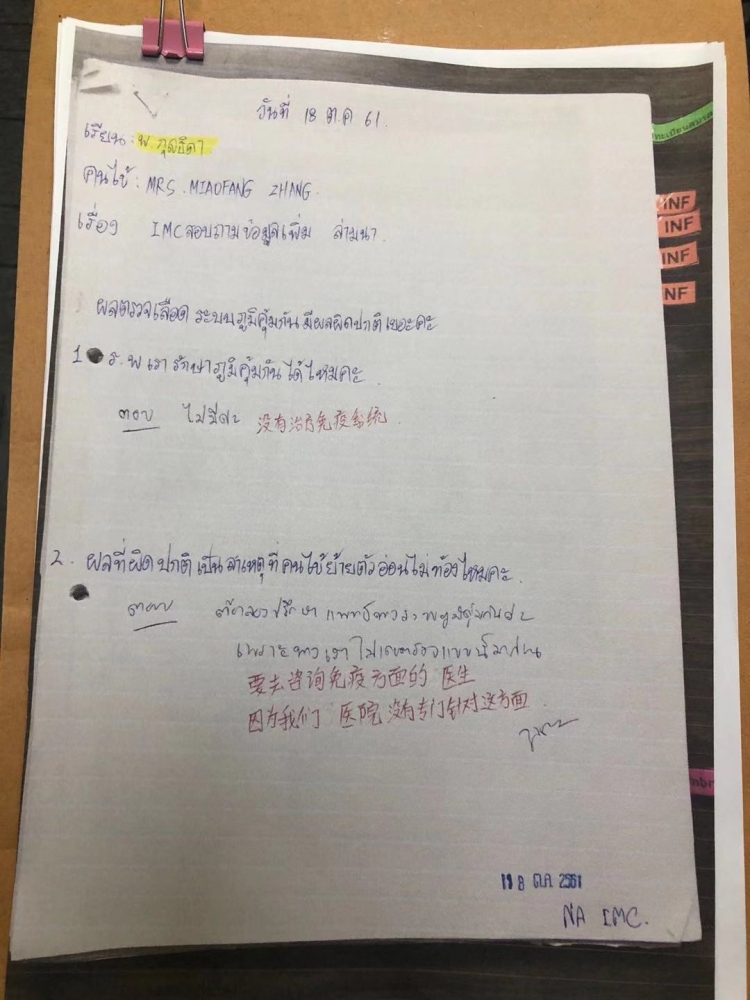 วันที่ 18 ต.ค 61.
เรียน : พ. กุลธิดา
คนไข้ : MRS. MIAOFANG ZHANG.
เรื่อง IMC สอบถามข้อมูลเพิ่ม ล่ามนา.
ผลตรวจเลือด ระบบภูมิคุ้มกัน มีผลผิดปกติเยอะคะ
1. ร.พ เรารักษาภูมิคุ้มกันได้ไหมคะ.
ตอบ ไม่มีค่ะ 没有治疗免疫系统.
2. ผลที่ผิดปกติ เป็นสาเหตุที่คนไข้ย้ายตัวอ่อนไม่ท้องไหมคะ.
ตอบ
เพราะทางเราไม่
要去咨询免疫方面的 医生
因为我们 医院 没有专门针对这方面.
18 ต.ค. 2561
NA IMC.
INF
INF
INF
NF